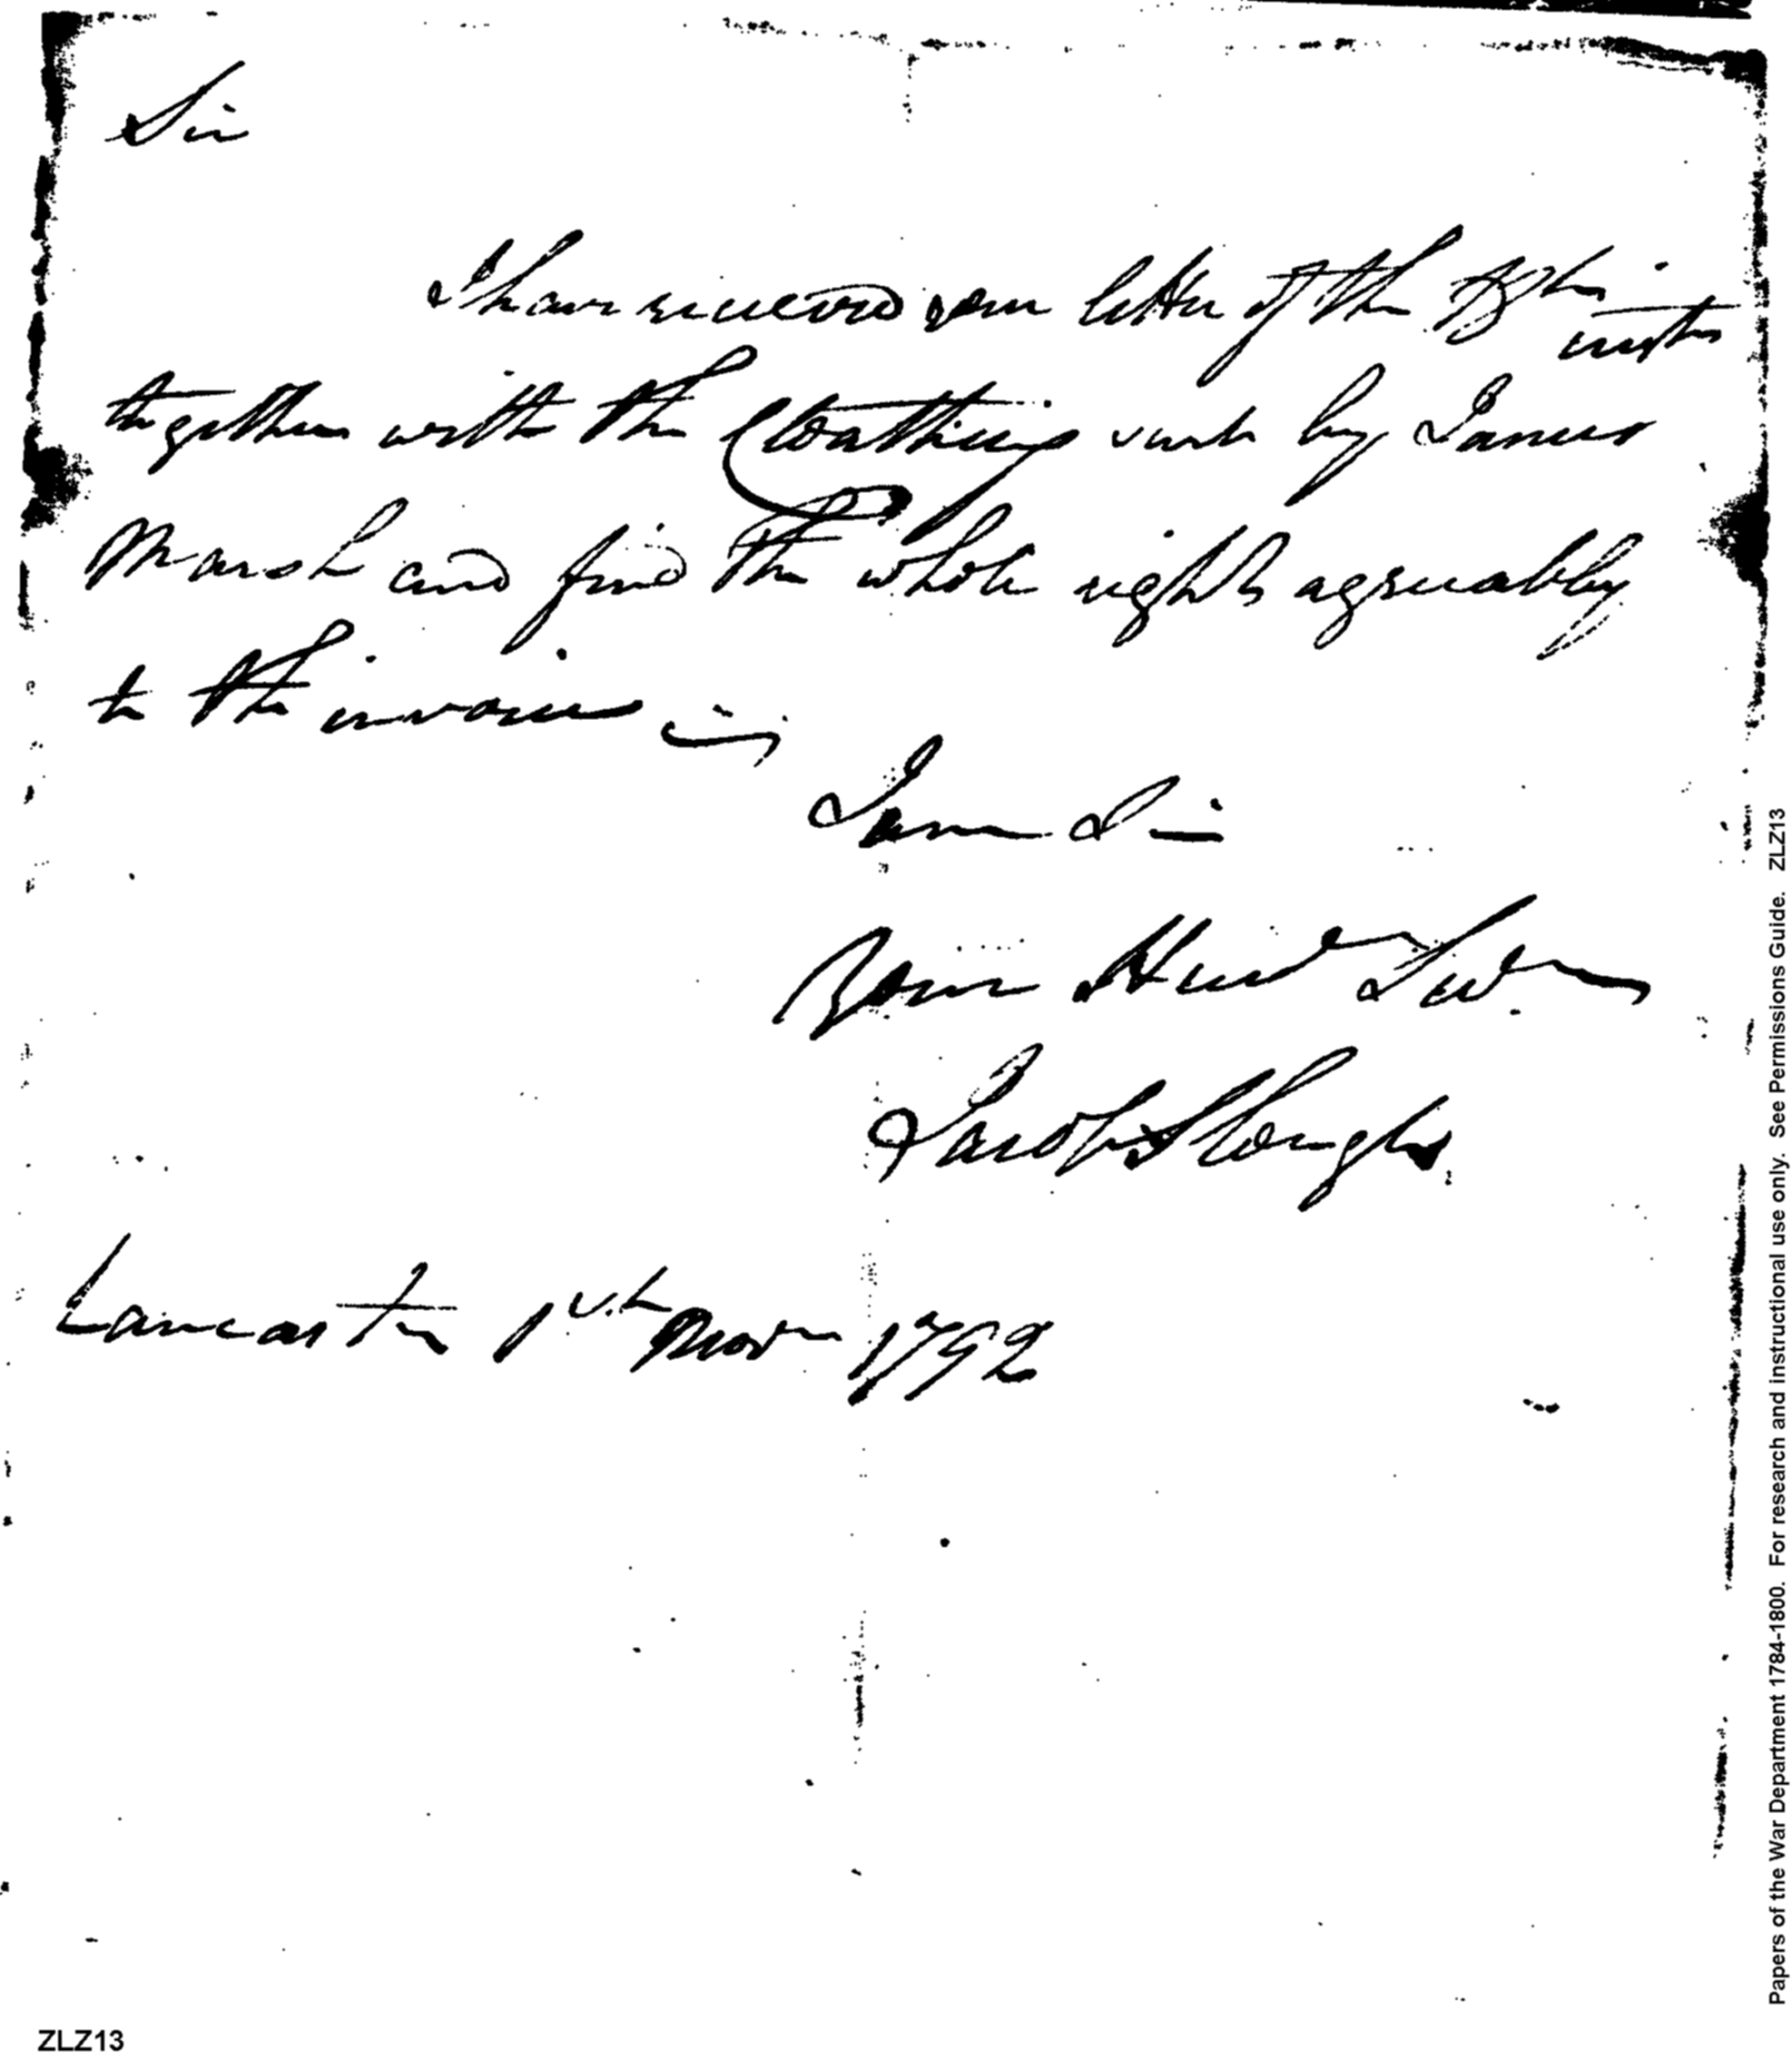 Sir
I have received your letter of the
together with the Cloathing sent by James
Marsh and find the whole right agreeably
to the invoice
I am Sir
Your Hum Ser
Jacob Slough
Lancaster 1st Novr 1792
ZLZ13
Papers of the War Department 1784-1800. For research and instructional use only. See Permissions Guide. ZLZ13